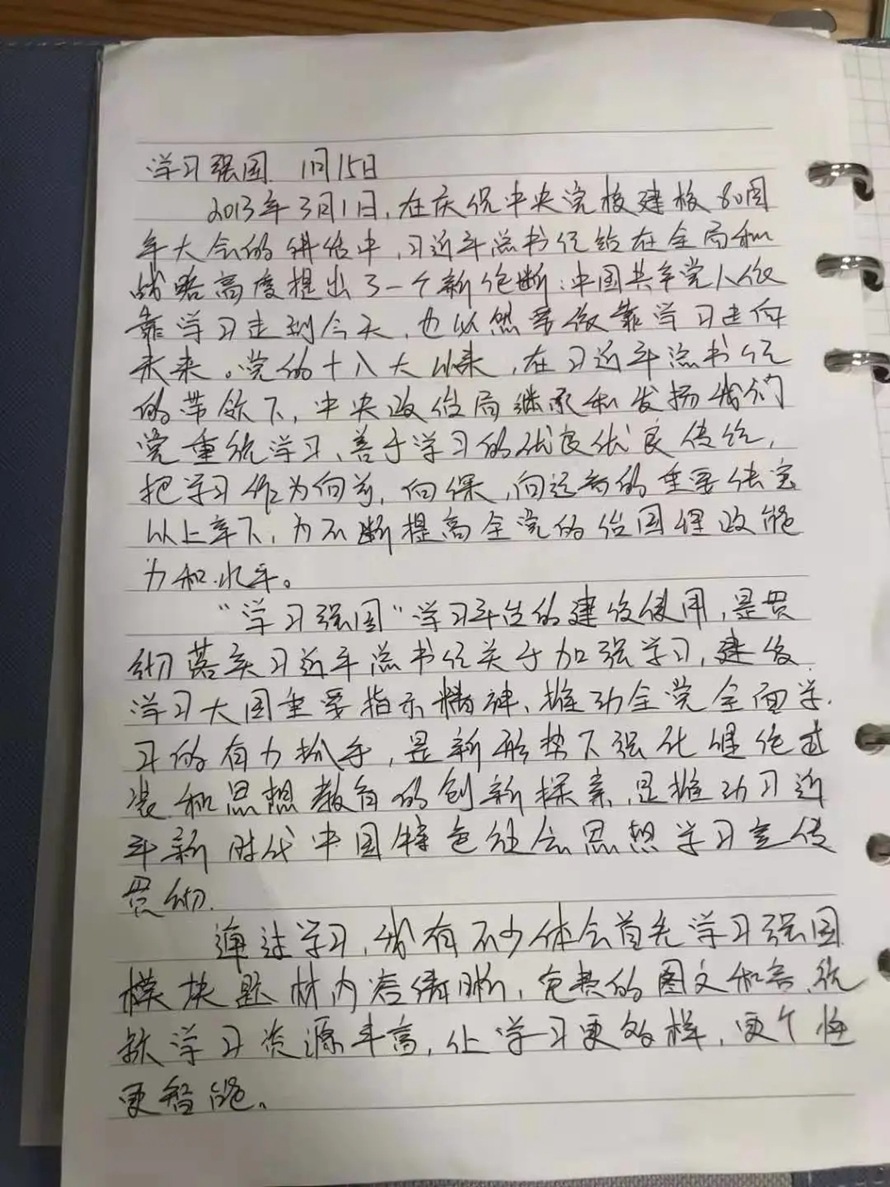 学习强国 1月15日
2013年3月1日,在庆祝中央党校建校80周
年大会的讲话中,习近平总书记站在全局和
战略高度提出了一个新论断:中国共产党人依
靠学习走到今天,也必然要依靠学习走向
未来。党的十八大以来,在习近平总书记
的带领下,中央政治局继承和发扬我们
党重视学习、善于学习的优良优良传统,
把学习作为向前,向深,向远的重要法宝
以上率下,为不断提高全党的治国理政能
力和水平。
“学习强国”学习平台的建设使用,是贯
彻落实习近平总书记关于加强学习,建设
学习大国重要指示精神、推动全党全面学
习的有力抓手,是新形势下强化理论武
装和思想教育的创新探索,是推动习近
平新时代中国特色社会思想学习宣传
贯彻.
通过学习,我有不少体会首先学习强国
模块题材内容清晰,免费的图文和音视
频学习资源丰富,让学习更多样,更个性
更智能、